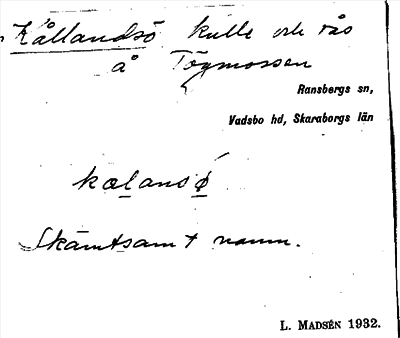 Kållandsö kulle och ås
å Tögmossen
Ransbergs sn,
Vadsbo hd, Skaraborgs län
kælansǿ
Skämtsamt namn.
L. MADSÉN 1932.